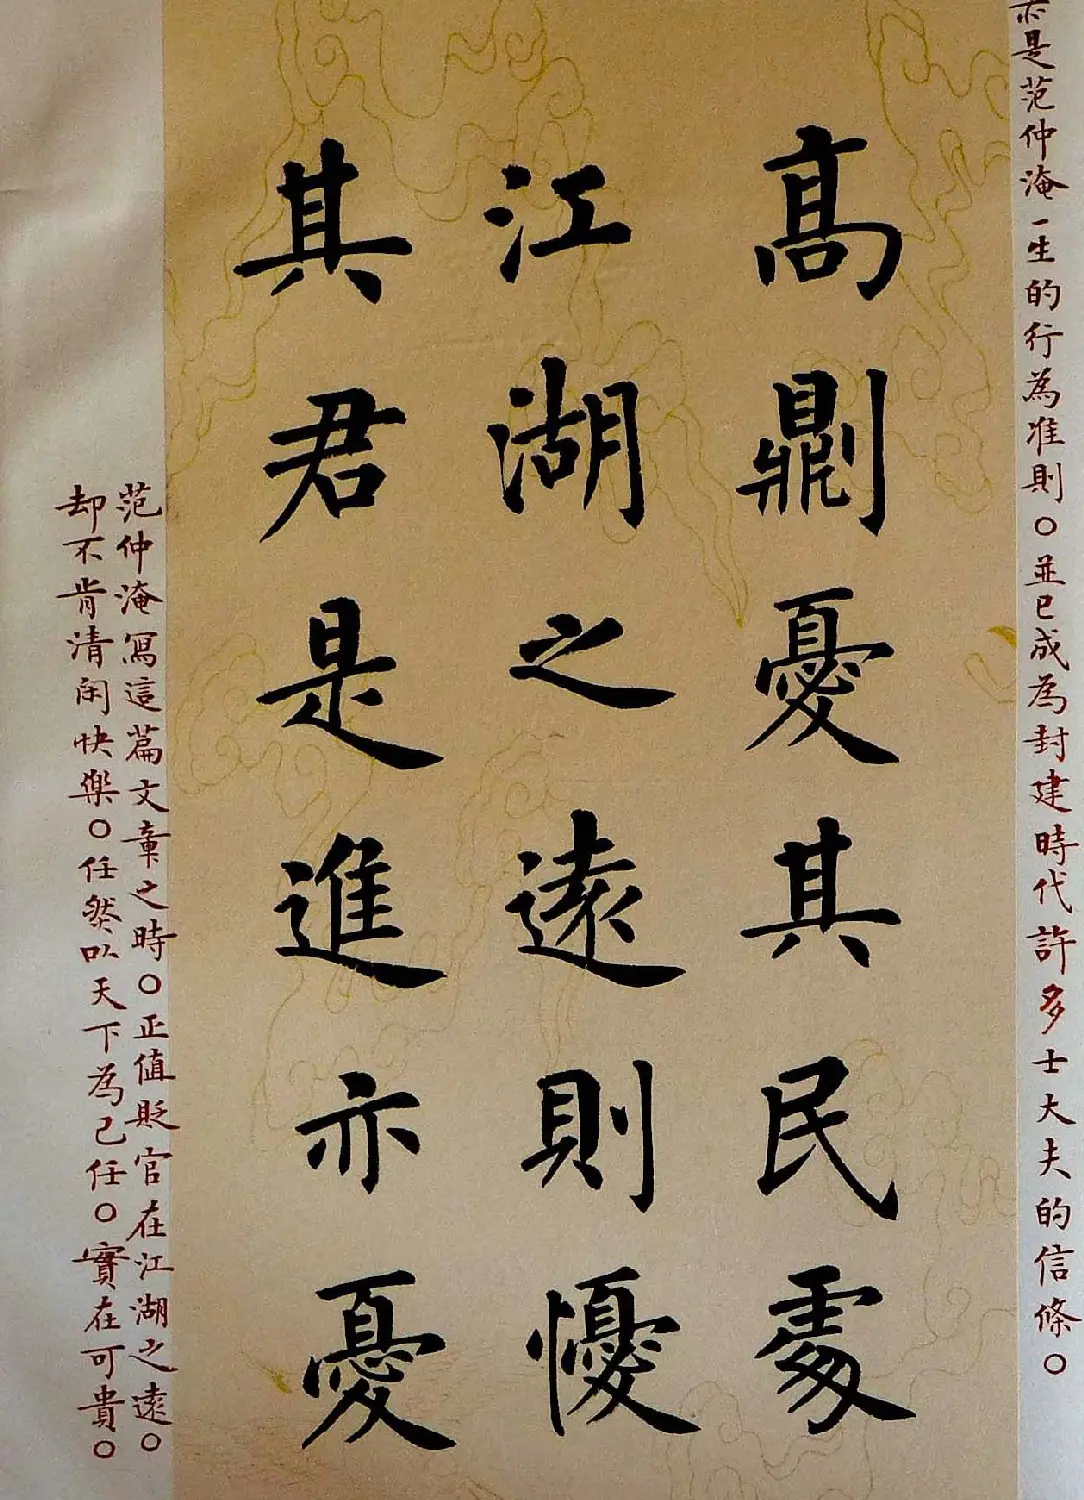 亦是范仲淹一生的行為准則。並已成為封建時代許多士大夫的信條。
高𠟭憂其民處
江湖之逺則懮
其君是進亦憂
范仲淹寫這篇文章之時。正值貶官在江湖之逺。
却不肯清閑快樂。任然以天下為己任。實在可貴。